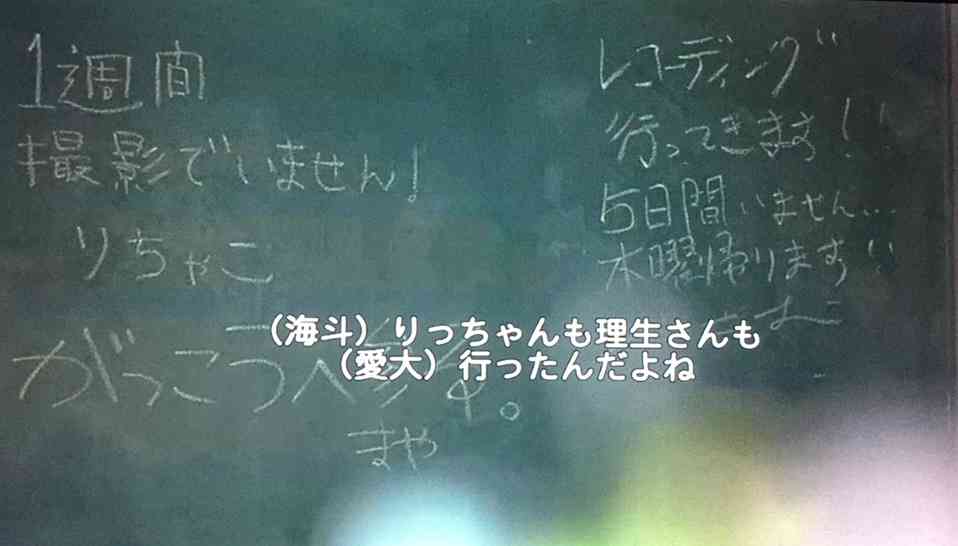 1週間
撮影でいません！
りちゃこ
レコーディング
行ってきます！！
5日間いません…
木曜帰ります！！
がっこうへ
まや
（海斗）りっちゃんも理生さんも
（愛大）行ったんだよね